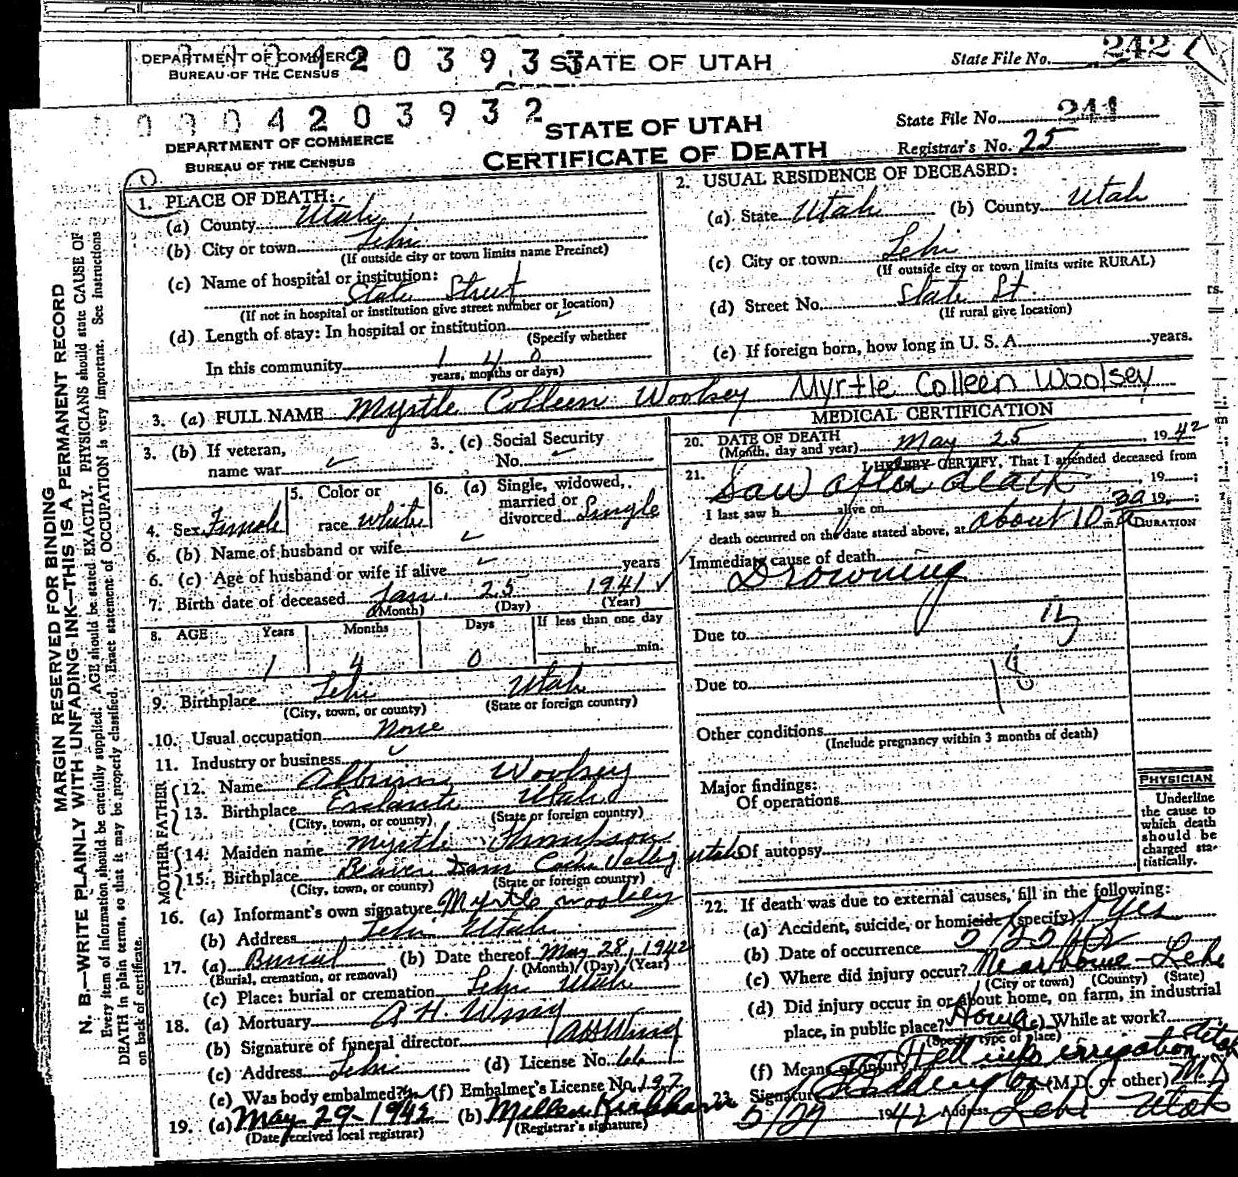 DEPARTMENT OF COMMERCE
BUREAU OF THE CENSUS
4 2 0 3 9 3 3
STATE OF UTAH
State File No. 242
0 0 0 4 2 0 3 9 3 2
DEPARTMENT OF COMMERCE
BUREAU OF THE CENSUS
STATE OF UTAH
CERTIFICATE OF DEATH
State File No. 241
Registrar's No. 25
MARGIN RESERVED FOR BINDING
N. B.—WRITE PLAINLY WITH UNFADING INK—THIS IS A PERMANENT RECORD
Every item of information should be carefully supplied. AGE should be stated EXACTLY. PHYSICIANS should state CAUSE OF
DEATH in plain terms, so that it may be properly classified. Exact statement of OCCUPATION is very important. See instructions
on back of certificate.
1. PLACE OF DEATH:
(a) County Utah
(b) City or town Lehi
(If outside city or town limits name Precinct)
(c) Name of hospital or institution:
State Street
(If not in hospital or institution give street number or location)
(d) Length of stay: In hospital or institution
(Specify whether
In this community 1 4 0
years, months or days)
2. USUAL RESIDENCE OF DECEASED:
(a) State Utah (b) County Utah
(c) City or town Lehi
(If outside city or town limits write RURAL)
(d) Street No. State St
(If rural give location)
(e) If foreign born, how long in U. S. A. years.
3. (a) FULL NAME Myrtle Colleen Woolsey Myrtle Colleen Woolsey
3. (b) If veteran,
name war
3. (c) Social Security
No.
4. Sex Female
5. Color or
race White
6. (a) Single, widowed,
married or
divorced Single
6. (b) Name of husband or wife
6. (c) Age of husband or wife if alive years
7. Birth date of deceased Jan. 25 1941
(Month) (Day) (Year)
8. AGE Years Months Days If less than one day
1 4 0 hr. min.
9. Birthplace Lehi Utah
(City, town, or county) (State or foreign country)
10. Usual occupation None
11. Industry or business
FATHER
12. Name Woolsey
13. Birthplace Utah
(City, town, or county) (State or foreign country)
MOTHER
14. Maiden name Myrtle Thompson
15. Birthplace Beaver Dam Cache Valley Utah
(City, town, or county) (State or foreign country)
16. (a) Informant's own signature Myrtle Woolsey
(b) Address Lehi Utah
17. (a) Burial (b) Date thereof May 28, 1942
(Burial, cremation, or removal) (Month) (Day) (Year)
(c) Place: burial or cremation Lehi Utah
18. (a) Mortuary A H Wing
(b) Signature of funeral director AH Wing
(c) Address Lehi (d) License No. 66
(e) Was body embalmed? (f) Embalmer's License No. 197
19. (a) May 29-1942 (b)
(Date received local registrar) (Registrar's signature)
MEDICAL CERTIFICATION
20. DATE OF DEATH
(Month, day and year) May 25, 1942
21. I HEREBY CERTIFY, That I attended deceased from
Saw after death 19
I last saw h alive on 19
death occurred on the date stated above, at about 10 30 a
DURATION
Immediate cause of death
Drowning
Due to
Due to
Other conditions
(Include pregnancy within 3 months of death)
Major findings:
Of operations
Of autopsy
PHYSICIAN
Underline
the cause to
which death
should be
charged sta-
tistically.
22. If death was due to external causes, fill in the following:
(a) Accident, suicide, or homicide (specify) Yes
(b) Date of occurrence 5/25/42
(c) Where did injury occur? Near home - Lehi
(City or town) (County) (State)
(d) Did injury occur in or about home, on farm, in industrial
place, in public place? Home (e) While at work?
(Specify type of place)
(f) Means of injury Fell into irrigation ditch
23. Signature (M.D. or other) M.D
5/27 1942 Address Lehi Utah